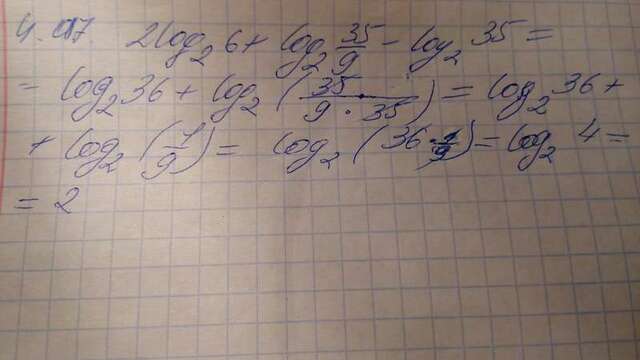 2log₂6 + log₂ 35/9 - log₂ 35 =
= log₂ 36 + log₂ (35/(9 · 35)) = log₂ 36 +
+ log₂ (1/9) = log₂ (36 · 1/9) = log₂ 4 =
= 2